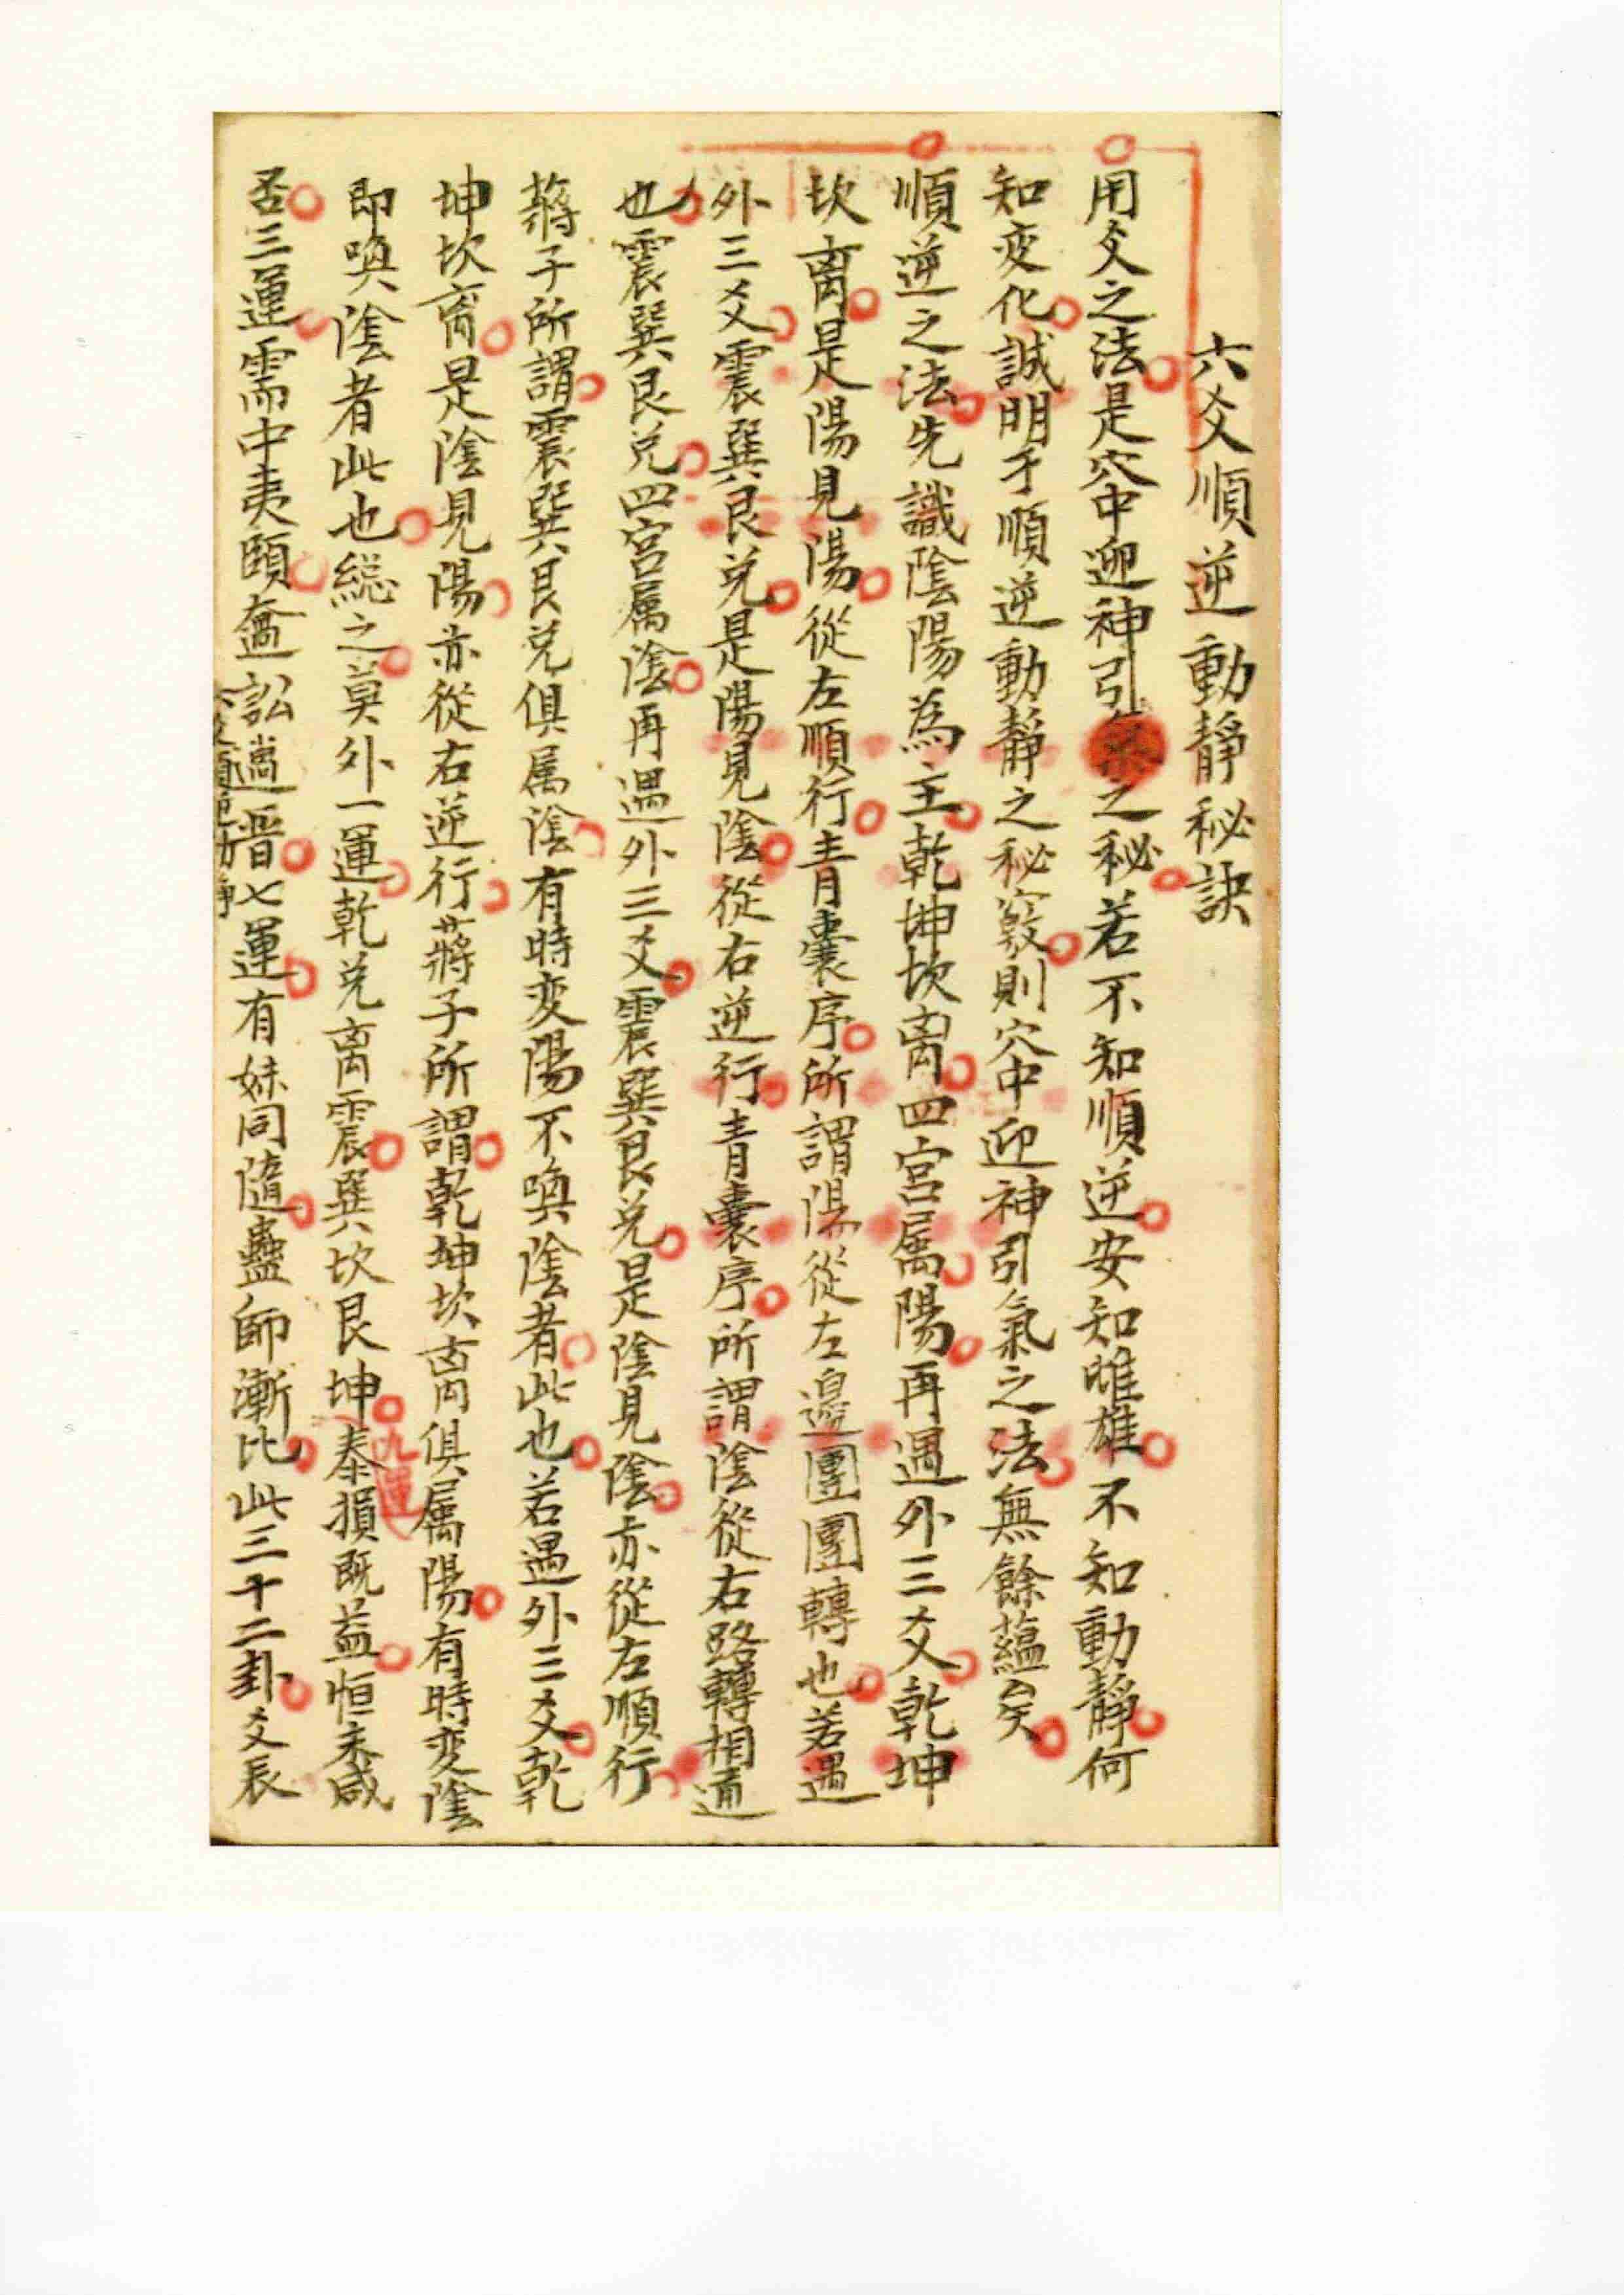 六爻順逆動靜秘訣
用爻之法是穴中迎神引之秘若不知順逆安知雌雄不知動靜何
知变化誠明于順逆動靜之秘竅則穴中迎神引氣之法無餘蘊矣
順逆之法先識陰陽為主乾坤坎离四宮属陽再遇外三爻乾坤
坎离是陽見陽從左順行青囊序所謂陽從左邊團團轉也若遇
外三爻震巽艮兑是陽見陰從右逆行青囊序所謂陰從右路轉相通
也震巽艮兑四宮属陰再遇外三爻震巽艮兑是陰見陰亦從左順行
蔣子所謂震巽艮兑俱属陰有時变陽不喚陰者此也若遇外三爻乾
坤坎离是陰見陽亦從右逆行蔣子所謂乾坤坎离俱屬陽有時变陰
即喚陰者此也総之莫外一運乾兑离震巽坎艮坤九運泰損既益恒未咸
否三運需中夷頤蠱訟遯晋七運有妹同隨蠱師漸比此三十二卦爻辰